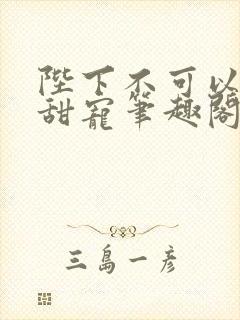 陛下不可以
甜寵筆趣閣
三島一彦